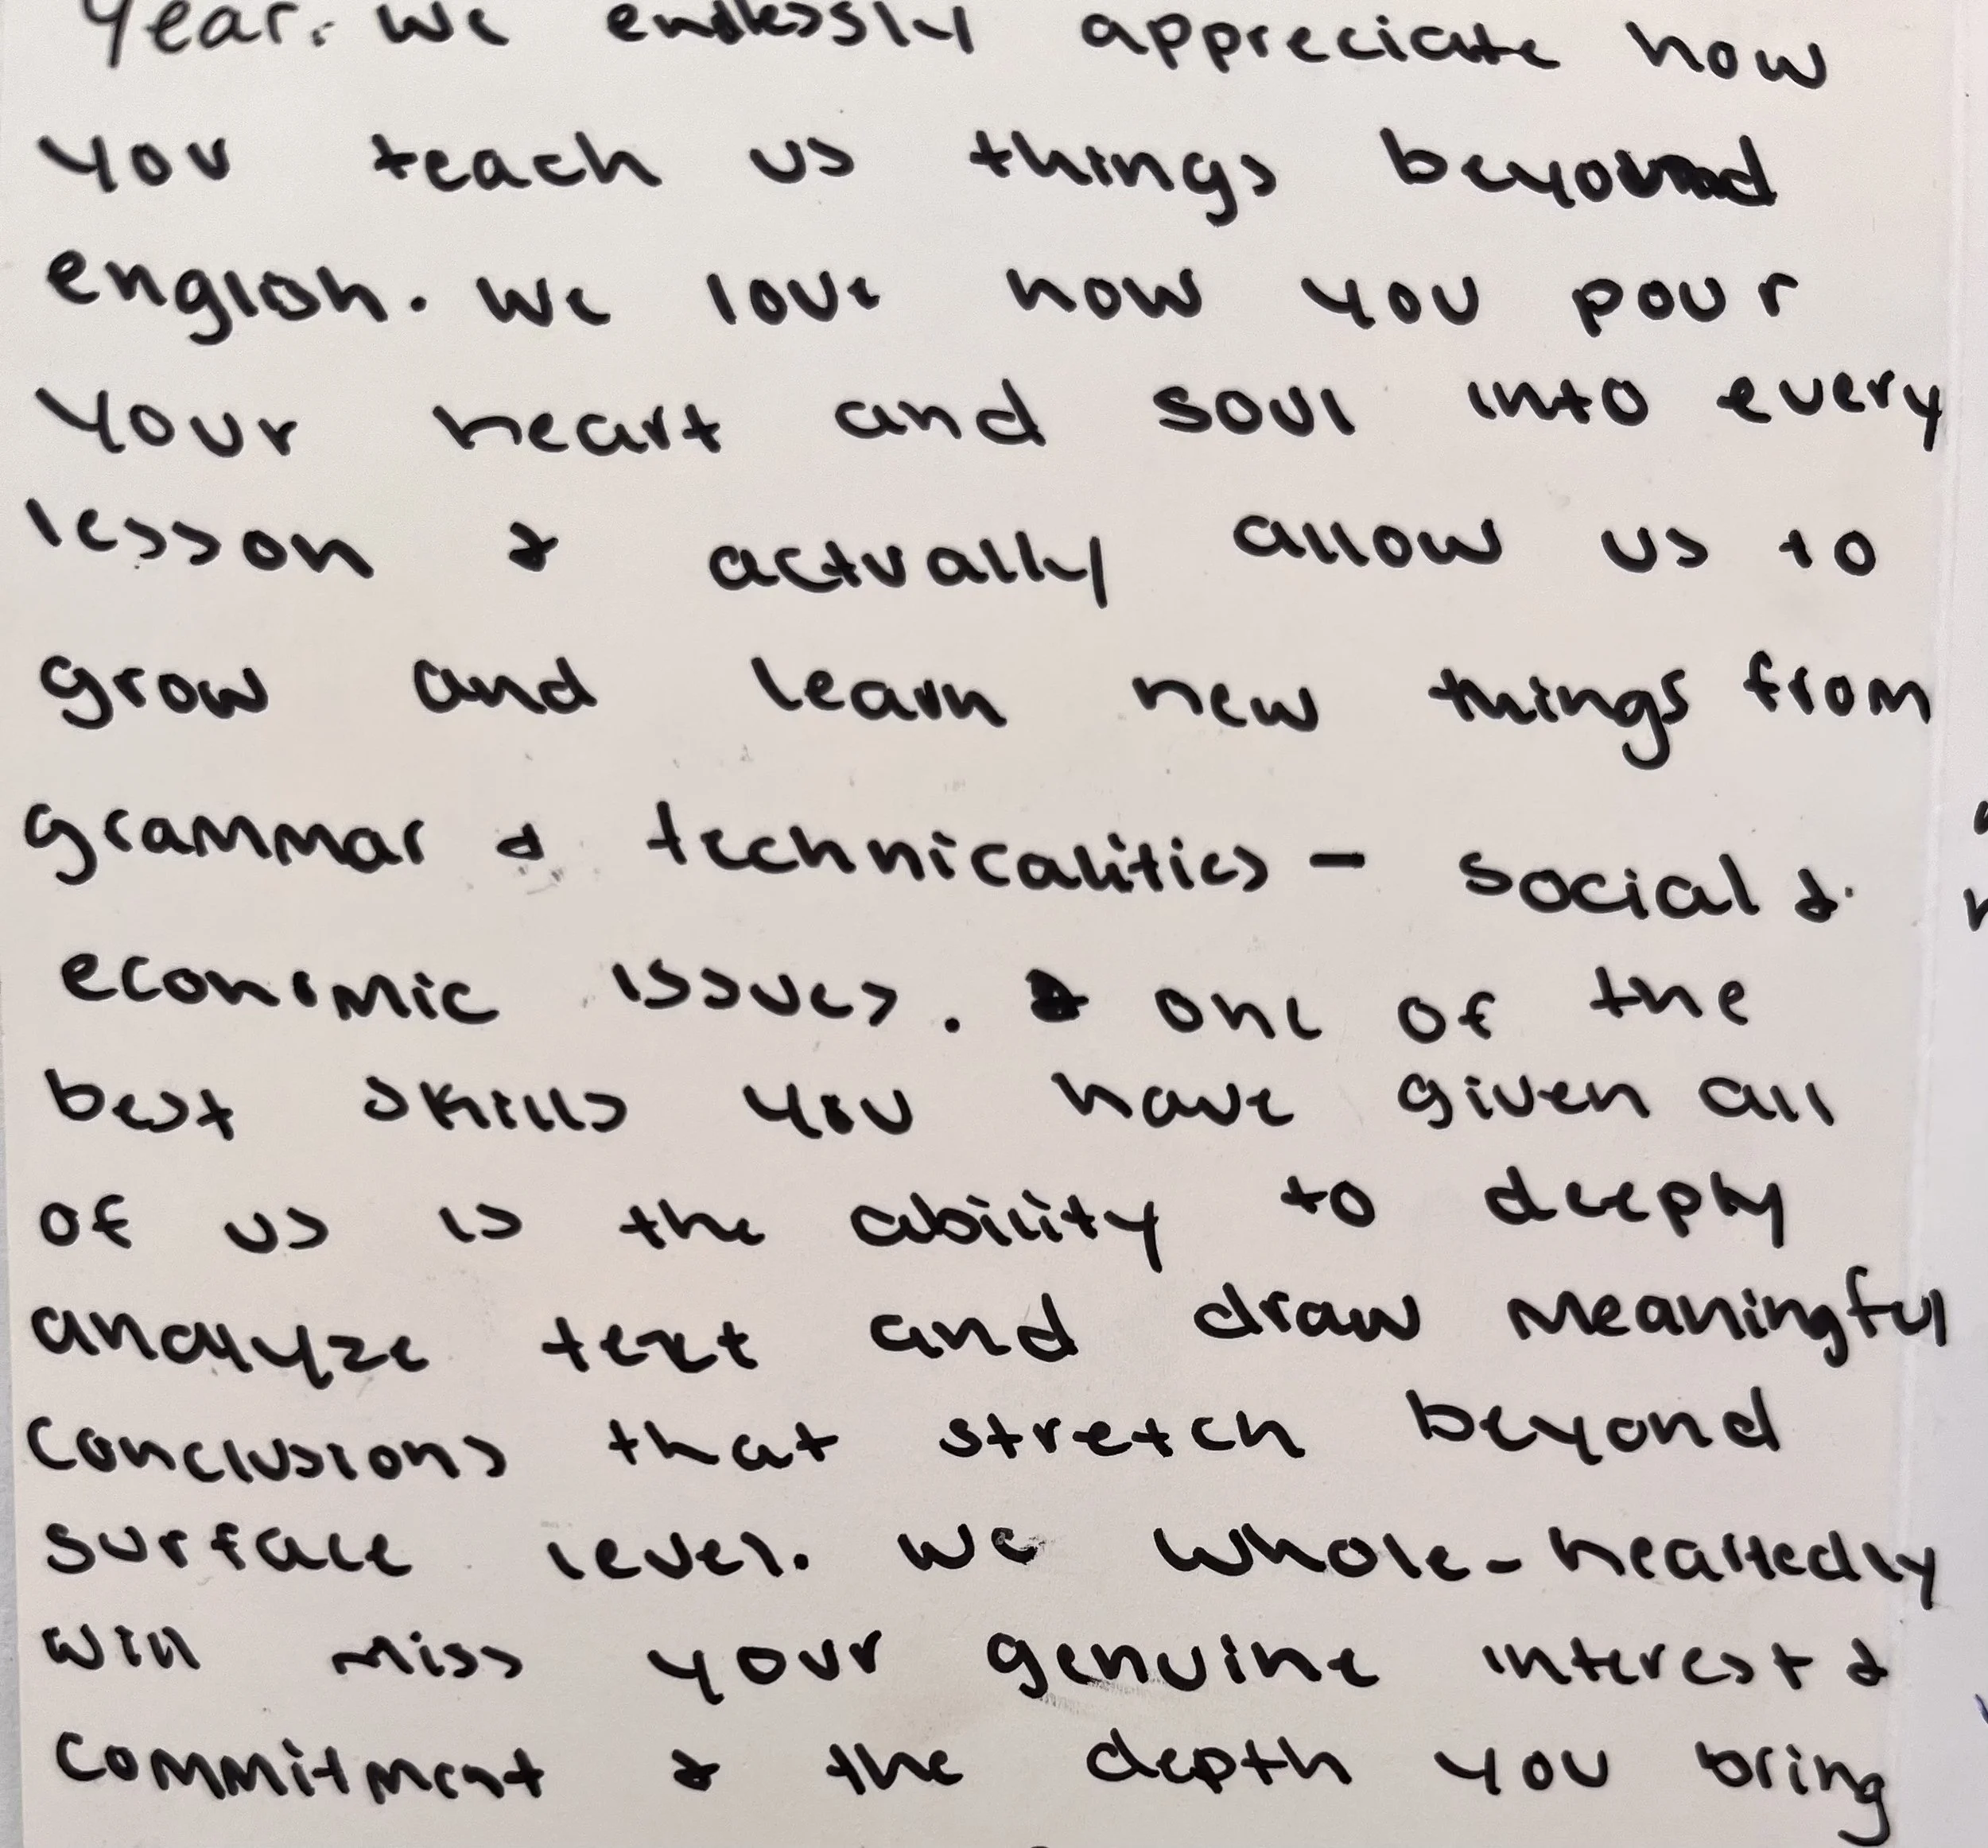 Year. We endlessly appreciate how
you teach us things beyond
english. We love how you pour
your heart and soul into every
lesson & actually allow us to
grow and learn new things from
grammar & technicalities - social &
economic issues. & one of the
best skills you have given all
of us is the ability to deeply
analyze text and draw meaningful
conclusions that stretch beyond
surface level. We whole-heartedly
will miss your genuine interest &
commitment & the depth you bring